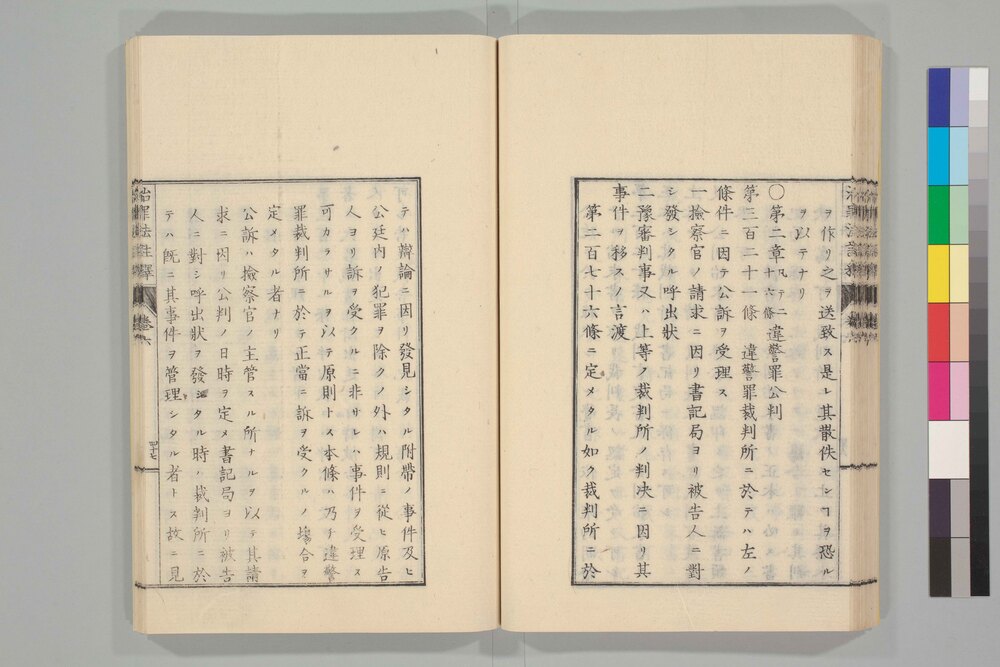 ヲ作リ之ヲ送致ス是レ其散佚センヿヲ恐ル
ヲ以テナリ
〇第二章 違警罪公判
第三百二十一條 違警罪裁判所ニ於テハ左ノ
條件ニ因テ公訴ヲ受理ス
一檢察官ノ請求ニ因リ書記局ヨリ被告人ニ對
シ發シタル呼出狀
二豫審判事又ハ上等ノ裁判所ノ判决ニ因リ其
事件ヲ移スノ言渡
第二百七十六條ニ定メタル如ク裁判所ニ於
テハ辯論ニ因リ發見シタル附帶ノ事件及ヒ
公廷内ノ犯罪ヲ除クノ外ハ規則ニ從ヒ原告
人ヨリ訴ヲ受クルニ非サレハ事件ヲ受理ス
可カラサルヲ以テ原則トス本條ハ乃チ違警
罪裁判所ニ於テ正當ニ訴ヲ受クルノ塲合ヲ
定メタル者ナリ
公訴ハ檢察官ノ主管スル所ナルヲ以テ其請
求ニ因リ公判ノ日時ヲ定メ書記局ヨリ被告
人ニ對シ呼出狀ヲ發シタル時ハ裁判所ニ於
テハ既ニ其事件ヲ管理シタル者トス故ニ見
治罪法註釋 卷六
四十七